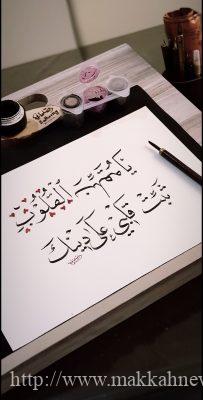 يَا مُقَلِّبَ الْقُلُوْبِ
ثَبِّتْ قَلْبِيْ عَلَى دِيْنِكَ
http://www.makkahnew